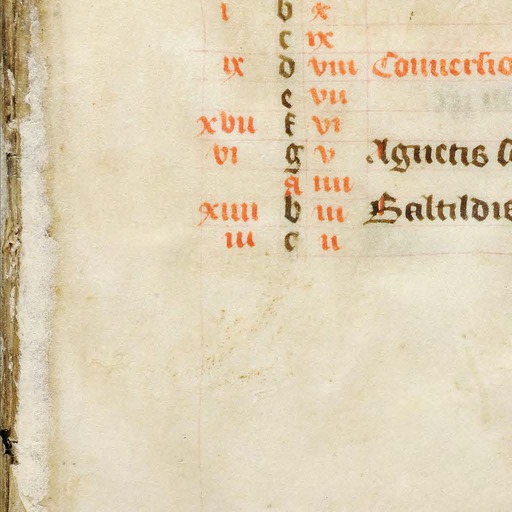 i b x
c ix
ix d viii Conuersio
e vii
xvii f vi
vi g v Agnetis se
a iiii
xiiii b iii Baltildis
iii c ii